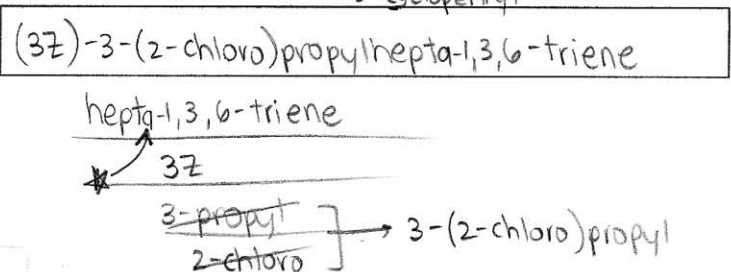 (3Z)-3-(2-chloro)propylhepta-1,3,6-triene
hepta-1,3,6-triene
3Z
3-propyl
2-chloro
3-(2-chloro)propyl